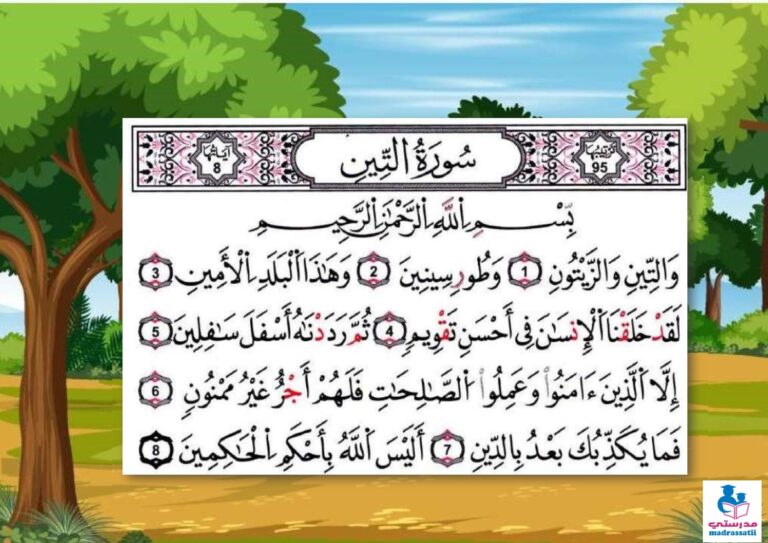 ترتيبها 95
سُورَةُ التِّين
آياتها 8
بِّسْمِ اِللَّهِ اِلرَّحْمَٰنِ اِلرَّحِيمِ
وَالتِّينِ وَالزَّيْتُونِ 1 وَطُورِ سِينِينَ 2 وَهَٰذَا اَلْبَلَدِ اِلْأَمِينِ 3
لَقَدْ خَلَقْنَا اَلْإِنسَٰنَ فِى أَحْسَنِ تَقْوِيمٍ 4 ثُمَّ رَدَدْنَٰهُ أَسْفَلَ سَٰفِلِينَ 5
إِلَّا اَلَّذِينَ ءَامَنُوا۟ وَعَمِلُوا۟ اُلصَّٰلِحَٰتِ فَلَهُمْ أَجْرٌ غَيْرُ مَمْنُونٍ 6
فَمَا يُكَذِّبُكَ بَعْدُ بِالدِّينِ 7 أَلَيْسَ اَللَّهُ بِأَحْكَمِ اِلْحَٰكِمِينَ 8
مدرستي
madrassatii